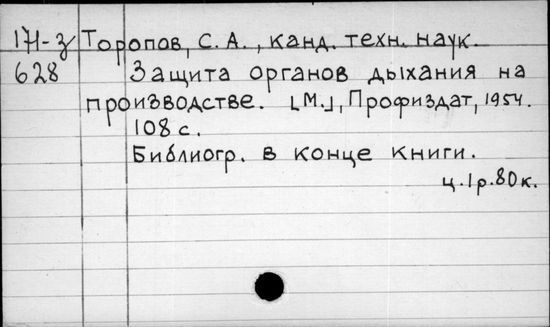 171-з Торопов, С. А., канд. техн. наук.
628 Защита органов дыхания на
производстве. [М.], Профиздат, 1954.
108 с.
Библиогр. в конце книги.
ц. 1 р. 80 к.